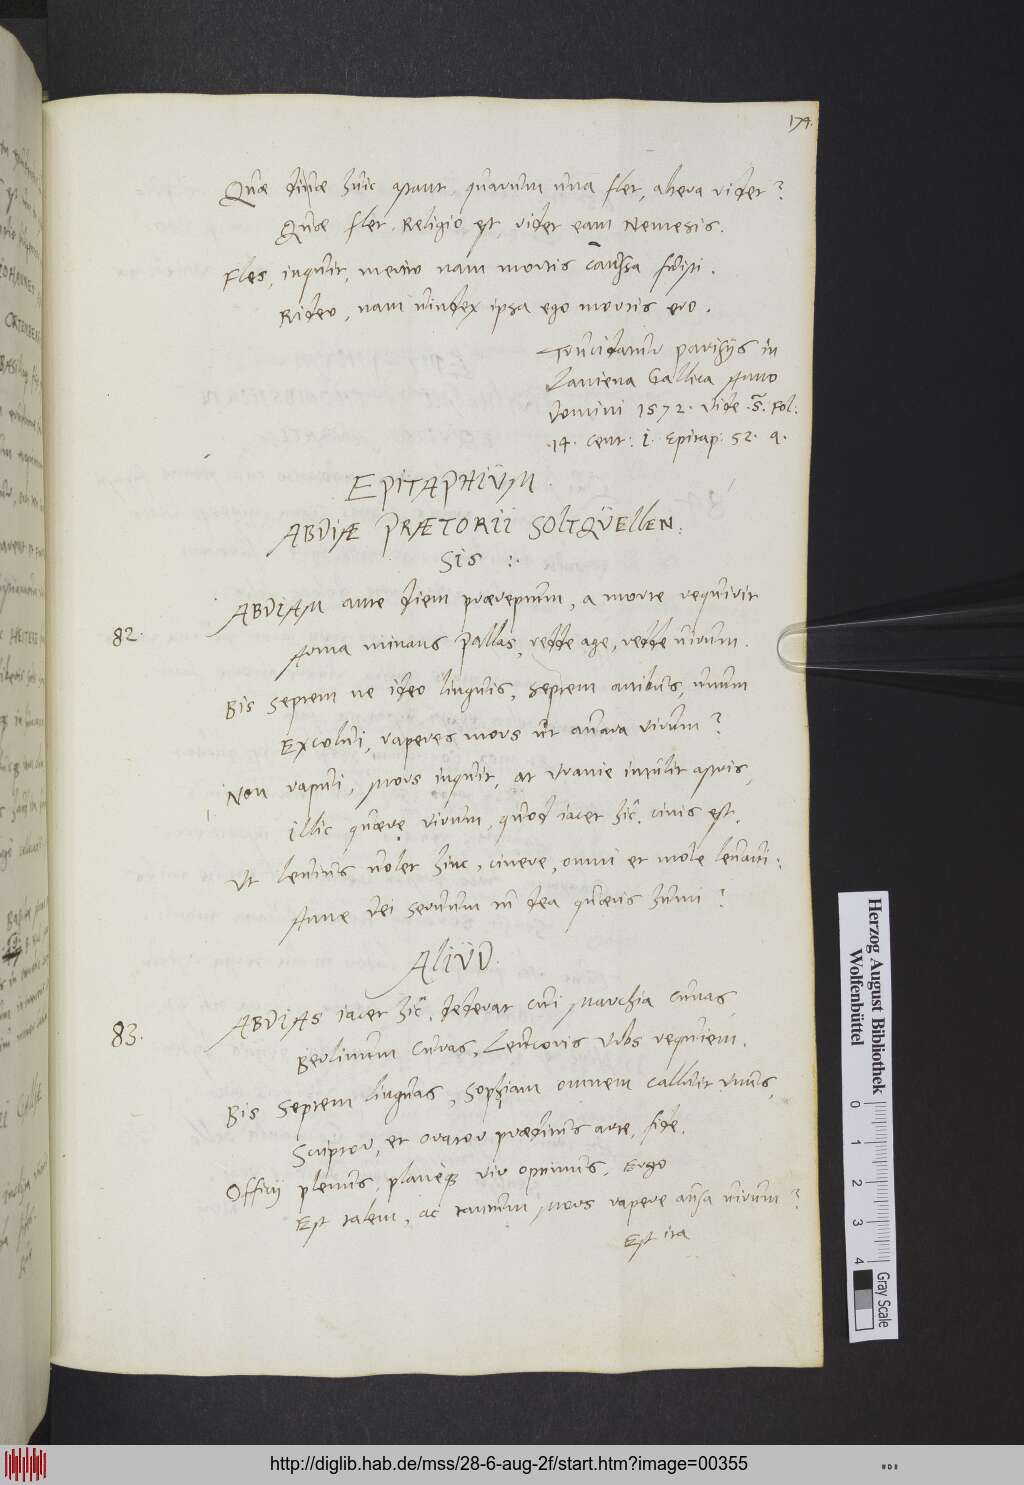 174.
Quæ divæ huic astant, quarum una flet, altera ridet?
Quæ flet, Religio est, ridet eam Nemesis.
Fles, inquit, merito nam mortis caussa fuisti.
Rideo, nam vindex ipsa ego mortis ero.
Trucidatur parisijs in
Laniena Gallica Anno
Domini 1572. Vide .S. Fol.
.14. Cent: I. Epitap: 52. a.
EPITAPHIUM
ABDIÆ PRÆTORII SOLTQUELLEN:
SIS :.
82.
ABDIAM ante diem præreptum, a morte requirit
Arma minans Pallas, redde age, redde virum.
Bis septem ne ideo linguis, septem artibus, unum
Excolui, raperes mors ut avara virum?
Non rapui, Mors inquit, at Uranie intulit astris,
Illic quære virum, quod iacet hic, cinis est.
Ut lenius volet hinc, cinere, omni et mole levavi:
Anne Dei servum tu dea quæris humi?
ALIUD.
83.
ABDIAS iacet hic, dederat cui Marchia cunas
Berlinum curas, Leucoris Urbs requiem.
Bis septem linguas, Sophiam omnem calluit unus,
Scriptor, et orator præditus arte, fide.
Officij plenus, planeq; vir optimus, Ergo
Est talem, ac tantum Mors rapere ausa virum?
Est ita
Herzog August Bibliothek
Wolfenbüttel
0 1 2 3 4
Gray Scale
http://diglib.hab.de/mss/28-6-aug-2f/start.htm?image=00355